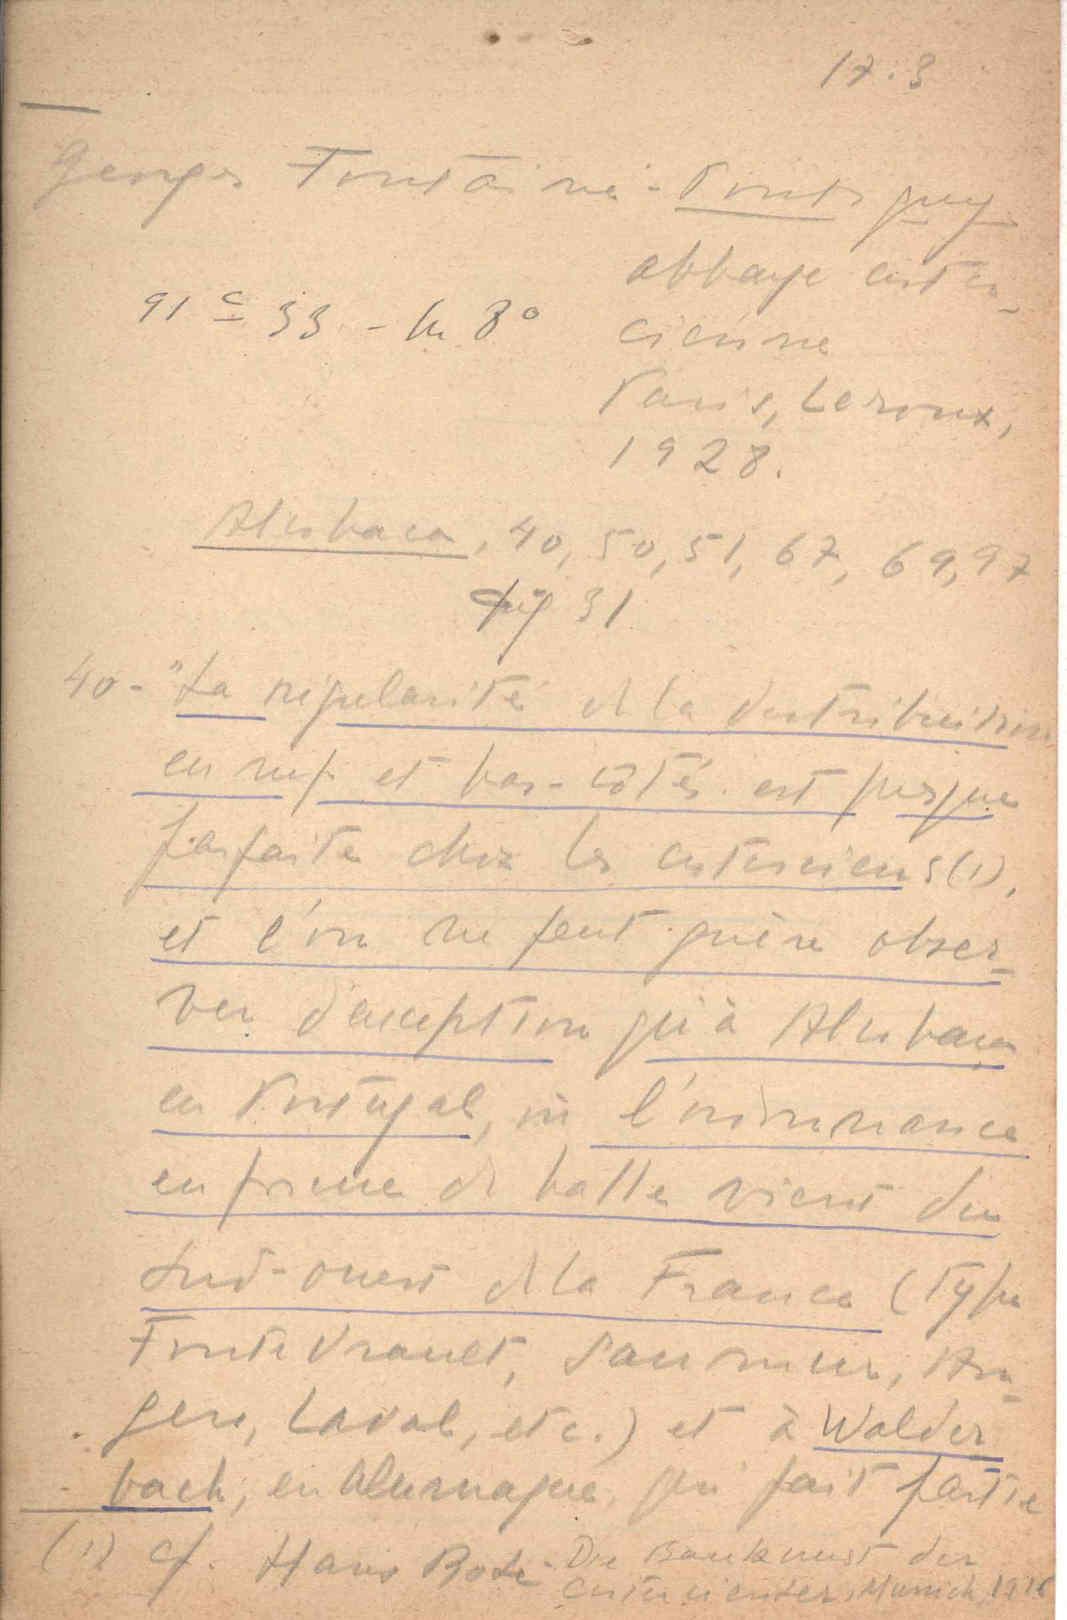 17.3
Georges Fontaine - Pontigny
abbaye cister-
91 c 33 - in 8º
cienne
Paris, Leroux,
1928.
Alcobaca, 40, 50, 51, 67, 69, 97
fig 31
40 - "La régularité de la distribution
en nef et bas-côtés est presque
parfaite chez les cisterciens (1),
et l'on ne peut guère obser-
ver d'exception qu'à Alcobaca
en Portugal, où l'ordonnance
en forme de halle vient du
Sud-ouest de la France (type
Fontevrault, Saumur, An-
gers, Laval, etc.) et à Walder
bach, en Allemagne, qui fait partie
(1) cf. Hans Rose - Die Baukunst der
Cistercienser, Munich, 1916